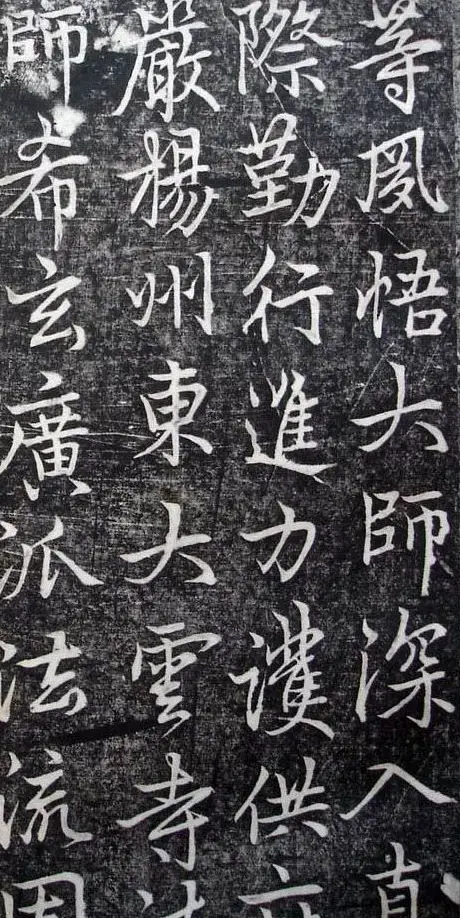 等夙悟大師深入
際勤行進力護供
嚴楊州東大雲寺
師希玄廣派法流